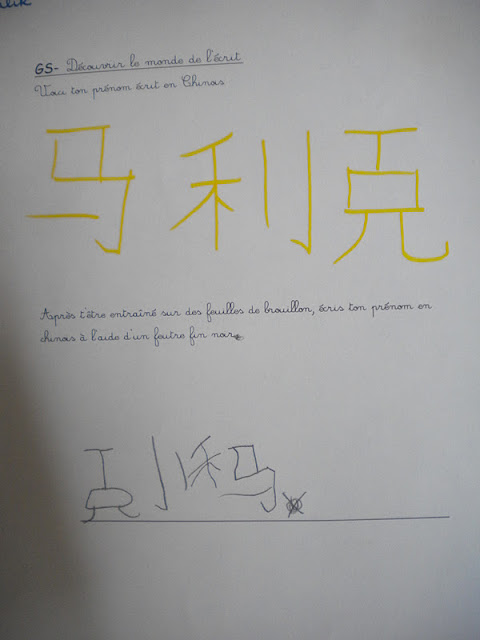 GS- Découvrir le monde de l'écrit
Voici ton prénom écrit en Chinois
马利克
Après t'être entraîné sur des feuilles de brouillon, écris ton prénom en
chinois à l'aide d'un feutre fin noir.
克利马